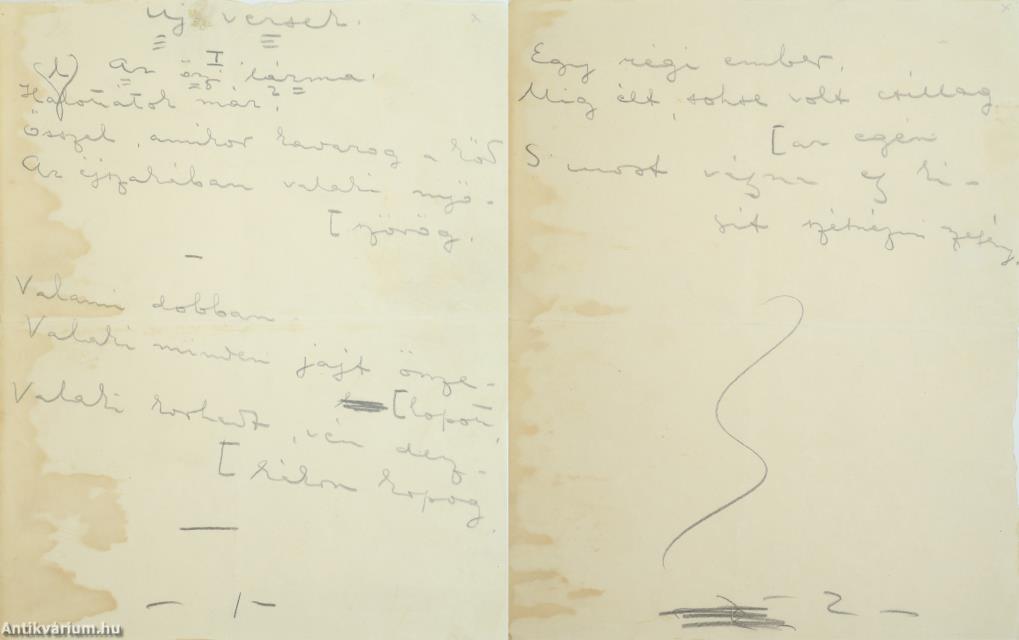 Uj versek.
I
Az őszi lárma.
Hallottátok már,
Ősszel, amikor kavarog a köd
Az éjszakában valaki nyö-
[ szörög.
Valami dobban
Valaki minden jajt össze-
[lopott,
Valaki korhadt, vén desz-
[kákon kopog.
- 1 -
Egy régi ember,
Mig élt, sohse volt csillag
[az egén
S most vágyna egy ki-
sit szétnézni szegény.
- 2 -
Antikvárium.hu